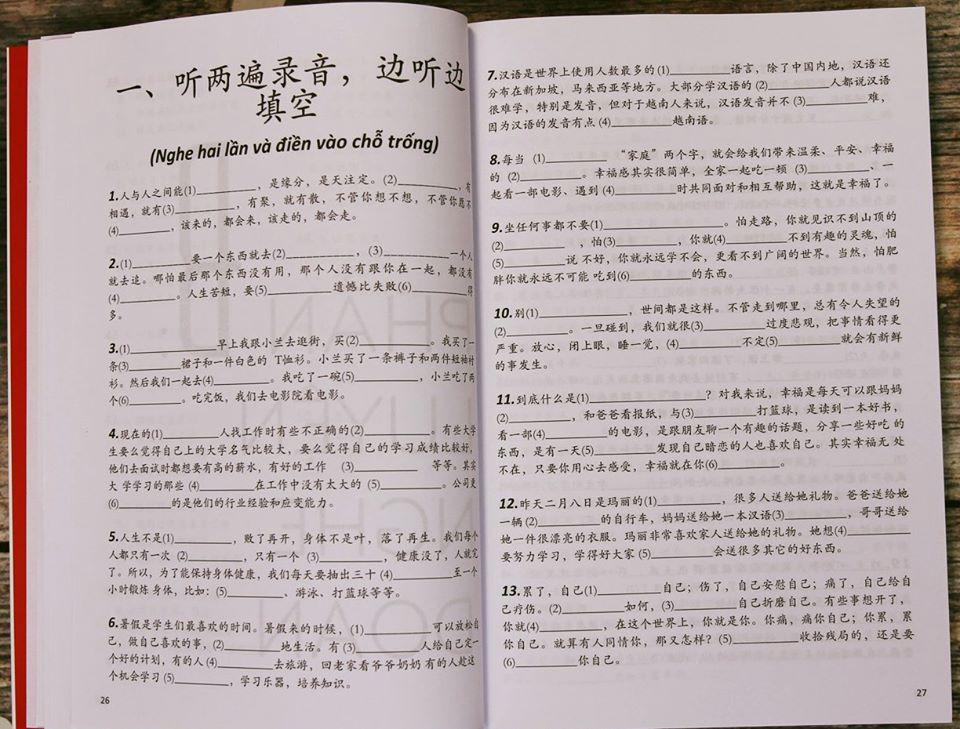 一、听两遍录音，边听边
填空
(Nghe hai lần và điền vào chỗ trống)
1.人与人之间能(1)_________，是缘分，是天注定。(2)_________，有
相遇，就有(3)_________，有聚，就有散，不管你想不想，不管你愿不
(4)_________，该来的，都会来，该走的，都会走。
2.(1)_________要一个东西就去(2)_________，(3)_________一个人
就去追。哪怕最后那个东西没有用，那个人没有跟你在一起，都没有
(4)_________。人生苦短，要(5)_________遗憾比失败(6)_________得
多。
3.(1)_________早上我跟小兰去逛街，买(2)_________。我买了一
条(3)_________裙子和一件白色的 T恤衫。小兰买了一条裤子和两件短袖衬
衫。然后我们一起去(4)_________。我吃了一碗(5)_________，小兰吃了两
个(6)_________。吃完饭，我们去电影院看电影。
4.现在的(1)_________人找工作时有些不正确的(2)_________。有些大学
生要么觉得自己上的大学名气比较大，要么觉得自己的学习成绩比较好，
他们去面试时都想要有高的薪水，有好的工作 (3)_________ 等等。其实
大 学学习的那些 (4)_________在工作中没有太大的 (5)_________。公司更
(6)_________的是他们的行业经验和应变能力。
5.人生不是(1)_________，败了再开，身体不是叶，落了再生。我们每个
人都只有一次 (2)_________，只有一个 (3)_________，健康没了，人就完
了。所以，为了能保持身体健康，我们每天要抽出三十 (4)_________至一个
小时锻炼 身体，比如：(5)_________、游泳、打篮球等等。
6.暑假是学生们最喜欢的时间。暑假来的时候，(1)_________ 可以放松自
己，做自己喜欢的事，(2)_________地生活。有 (3)_________人给自己定一
个好的计划，有的人 (4)_________去旅游，回老家看爷爷奶奶 有的人趁这
个机会学习 (5)_________，学习乐器，培养知识。
26
7.汉语是世界上使用人数最多的 (1)_________语言，除了中国内地，汉语 还
分布在新加坡，马来西亚等地方。大部分学汉语的 (2)_________人都说汉语
很难学，特别是发音，但对于越南人来说，汉语发音并不 (3)_________难，
因为汉语的发音有点 (4)_________越南语。
8.每当 (1)_________ “家庭”两个字，就会给我们带来温柔、平安、幸福
的 (2)_________。幸福感其实很简单，全家一起吃一顿 (3)_________、一
起看一部电影、遇到 (4)_________时共同面对和相互帮助，这就是幸福了。
9.坐任何事都不要(1)_________。怕走路，你就见识不到山顶的
(2)_________，怕(3)_________，你就(4)_________不到有趣的灵魂，怕
(5)_________说 不好，你就永远学不会，更看不到广阔的世界。当然，怕肥
胖你就永远不可能 吃到(6)_________的东西。
10.别(1)_________，世间都是这样。不管走到哪里，总有令人失望的
(2)_________。一旦碰到，我们就很(3)_________过度悲观，把事情看得更
严重。放心，闭上眼，睡一觉，(4)_________不定(5)_________就会有新鲜
的事发生。
11.到底什么是(1)_________？对我来说，幸福是每天可以跟妈妈
(2)_________，和爸爸看报纸，与(3)_________打篮球，是读到一本好书，
看一部(4)_________的电影，是跟朋友聊一个有趣的话题，分享一些好吃 的
东西，是有一天(5)_________发现自己暗恋的人也喜欢自己。其实幸福无 处
不在，只要你用心去感受，幸福就在你(6)_________。
12.昨天二月八日是玛丽的(1)_________，很多人送给她礼物。爸爸送给她
一辆(2)_________的自行车，妈妈送给她一本汉语(3)_________，哥哥送给
她一件很漂亮的衣服。玛丽非常喜欢家人送给她的礼物。她想(4)_________
要努力学习，学得好大家 (5)_________会送很多其它的好东西。
13.累了，自己(1)_________自己；伤了，自己安慰自己；痛了，自己给自
己疗伤。(2)_________如何，(3)_________自己折磨自己。有些事想开了，
你就(4)_________，在这个世界上，你就是你。你痛，痛你自己；你累，累
你自己。就算有人同情你，那又怎样？(5)_________收拾残局的，还是要
(6)_________你自己。
27